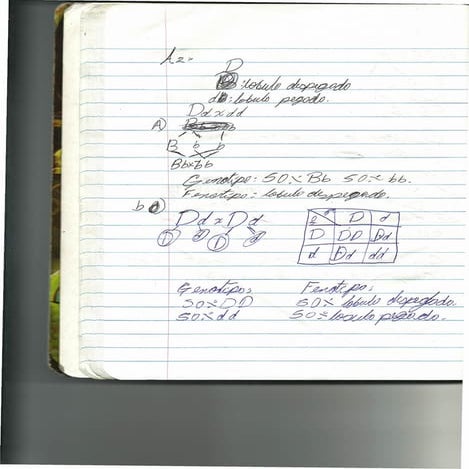 A2=
D
: lobulo despegado
d: lobulo pegado.
Dd x dd
A)
B b b
Bb x bb
Genotipo: 50% Bb 50% bb.
Fenotipo: lobulo despegado.
b
Dd x Dd
D d D d
♀ ♂ D d
D DD Dd
d Dd dd
Genotipo: Fenotipo:
50% DD 50% lobulo despegado.
50% dd 50% lobulo pegado.